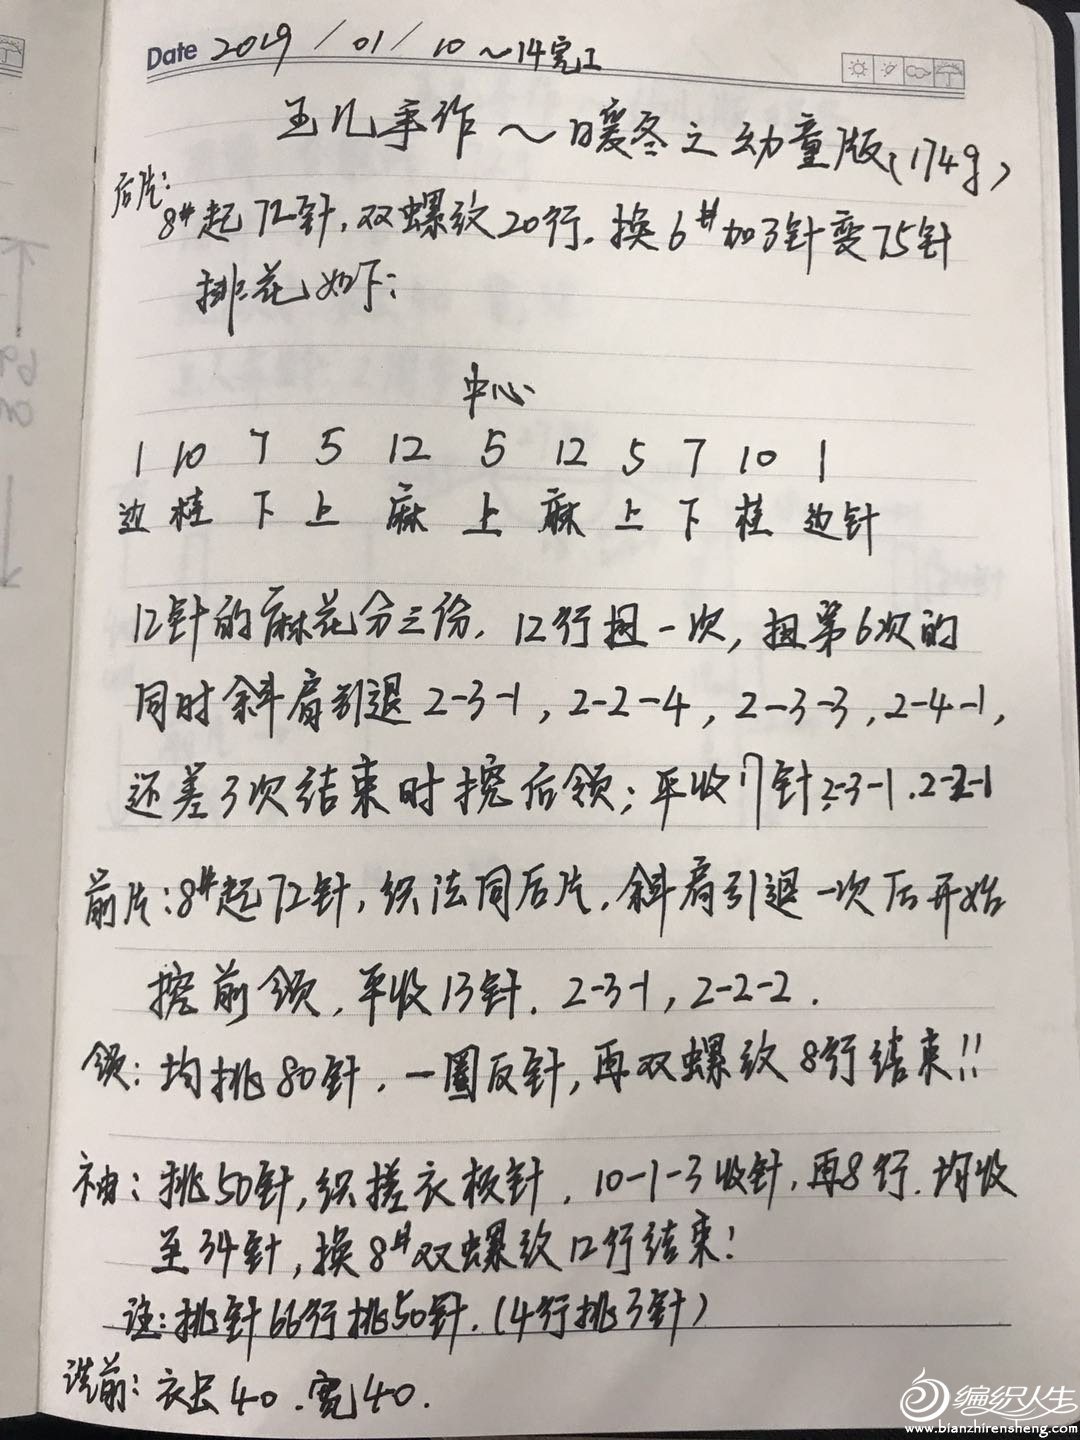 Date 2019/01/10~14完工
玉儿手作~暖冬之幼童版(174g)
后片:
8#起72针,双螺纹20行.换6#加3针变75针
排花如下:
中心
1 10 7 5 12 5 12 5 7 10 1
边 桂 下 上 麻 上 麻 上 下 桂 边针
12针的麻花分三份,12行扭一次,扭第6次的
同时斜肩引退2-3-1,2-2-4,2-3-3,2-4-1,
还差3次结束时挖后领;平收17针2-3-1.2-2-1
前片:8#起72针,织法同后片.斜肩引退一次后开始
挖前领,平收13针.2-3-1,2-2-2.
领:均挑80针.一圈反针,再双螺纹8行结束!!
袖:挑50针,织搓衣板针.10-1-3收针,再8行.均收
至34针,换8#双螺纹12行结束!
注:挑针66行挑50针.(4行挑3针)
洗前:衣长40.宽40.
编织人生
www.bianzhirensheng.com